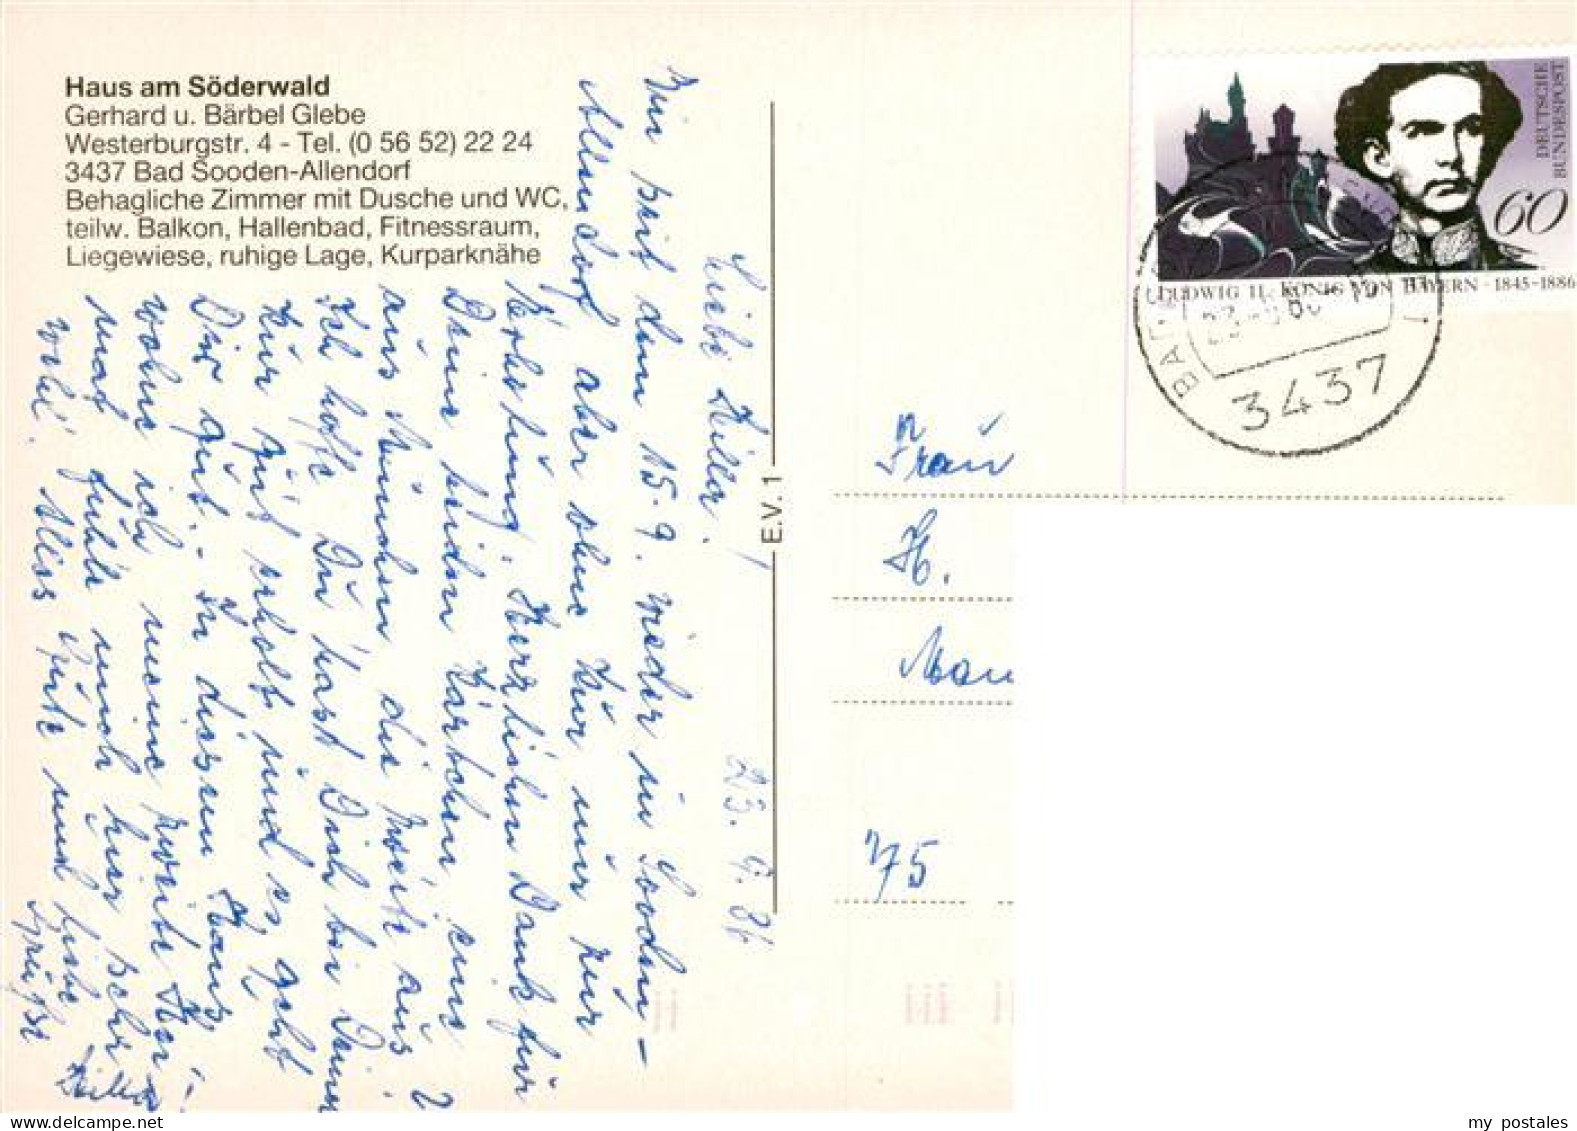 Haus am Söderwald
Gerhard u. Bärbel Glebe
Westerburgstr. 4 - Tel. (0 56 52) 22 24
3437 Bad Sooden-Allendorf
Behagliche Zimmer mit Dusche und WC,
teilw. Balkon, Hallenbad, Fitnessraum,
Liegewiese, ruhige Lage, Kurparknähe
23. 9. 86
Liebe
Bin seit dem 15. 9. wieder in Sooden-
Allendorf aber ohne Kur nur zur
Erholung. Herzlichen Dank für
Deine beiden Kärtchen, eins
aus München die zweite aus
Ich hoffe Du hast Dich bei Deiner
Kur gut erholt und es geht
Dir gut. In diesem Haus
wohne ich
und fühle mich hier sehr
wohl. Alles Gute und liebe
Grüße
E.V. 1
DEUTSCHE
BUNDESPOST
60
LUDWIG II. KÖNIG VON BAYERN - 1845-1886
3437
Frau
H.
75
my postales